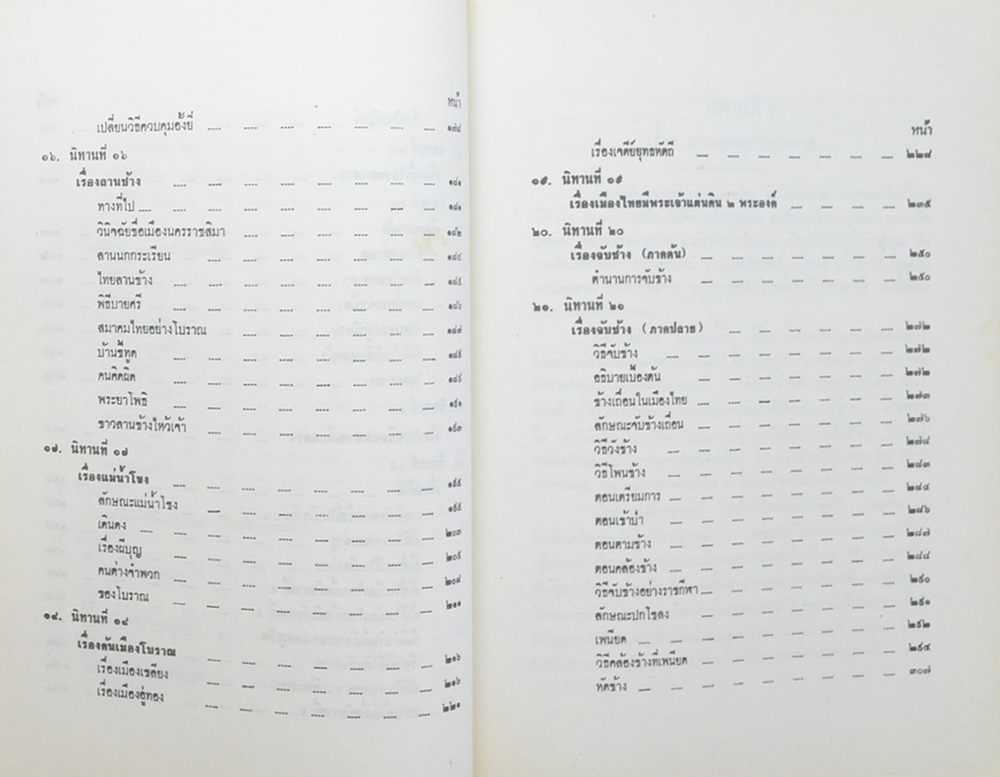 หน้า
เปลี่ยนวิธีควบคุมอั้งยี่ ๑๗๘
๑๖. นิทานที่ ๑๖
เรื่องลานช้าง ๑๘๑
ทางที่ไป ๑๘๑
วินิจฉัยชื่อเมืองนครราชสิมา ๑๘๒
ลานนกกระเรียน
ไทยลานช้าง
พิธีบายศรี ๑๘๖
สมาคมไทยอย่างโบราณ ๑๘๗
บ้านชีทูด
คนคิดผิด
พระยาโพธิ ๑๙๑
ชาวลานช้างไหว้เจ้า ๑๙๓
๑๗. นิทานที่ ๑๗
เรื่องแม่น้ำโขง
ลักษณะแม่น้ำโขง
เดินดง ๒๐๓
เรื่องผีบุญ ๒๐๕
คนต่างจำพวก ๒๐๘
ของโบราณ ๒๑๑
๑๘. นิทานที่ ๑๘
เรื่องค้นเมืองโบราณ ๒๑๖
เรื่องเมืองเชลียง ๒๑๖
เรื่องเมืองอู่ทอง ๒๒๑
หน้า
เรื่องเจดีย์ยุทธหัตถี ๒๒๘
๑๙. นิทานที่ ๑๙
เรื่องเมืองไทยมีพระเจ้าแผ่นดิน ๒ พระองค์ ๒๓๕
๒๐. นิทานที่ ๒๐
เรื่องจับช้าง (ภาคต้น) ๒๕๐
ตำนานการจับช้าง ๒๕๐
๒๑. นิทานที่ ๒๑
เรื่องจับช้าง (ภาคปลาย) ๒๗๒
วิธีจับช้าง ๒๗๒
อธิบายเบื้องต้น ๒๗๒
ช้างเถื่อนในเมืองไทย ๒๗๓
ลักษณะจับช้างเถื่อน ๒๗๖
วิธีวังช้าง ๒๗๘
วิธีโพนช้าง ๒๘๓
ตอนเตรียมการ ๒๘๔
ตอนเข้าป่า ๒๘๖
ตอนตามช้าง ๒๘๗
ตอนคล้องช้าง ๒๘๘
วิธีจับช้างอย่างราชกีฬา ๒๙๐
ลักษณะปกโขลง ๒๙๑
เพนียด ๒๙๒
วิธีคล้องช้างที่เพนียด ๒๙๕
หัดช้าง ๓๐๗